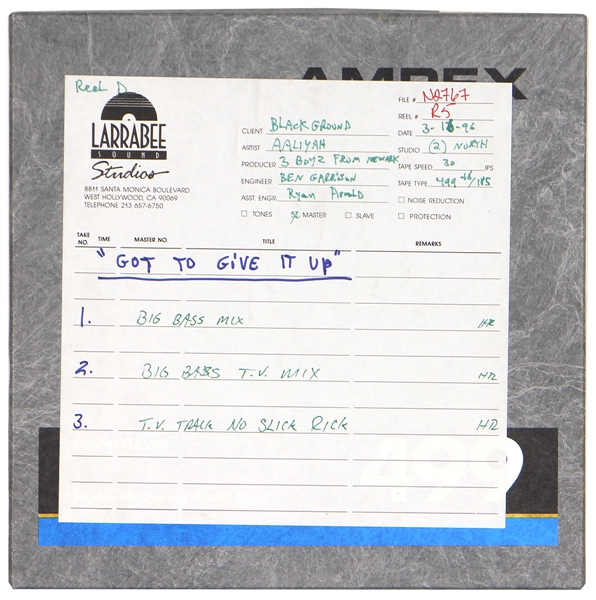 AMPEX
Reel D
LARRABEE
SOUND
Studios
8811 SANTA MONICA BOULEVARD
WEST HOLLYWOOD, CA 90069
TELEPHONE 213 657-6750
CLIENT BLACKGROUND
ARTIST AALIYAH
PRODUCER 3 BOYZ FROM NEWARK
ENGINEER BEN GARRISON
ASST. ENGR. Ryan Arnold
TONES MASTER SLAVE
FILE # NQ767
REEL # R5
DATE 3-13-96
STUDIO (2) NORTH
TAPE SPEED 30 IPS
TAPE TYPE 499 +6/185
NOISE REDUCTION
PROTECTION
TAKE NO. TIME MASTER NO. TITLE REMARKS
"GOT TO GIVE IT UP"
1. BIG BASS MIX HR
2. BIG BASS T.V. MIX HR
3. T.V. TRACK NO SLICK RICK HR
499